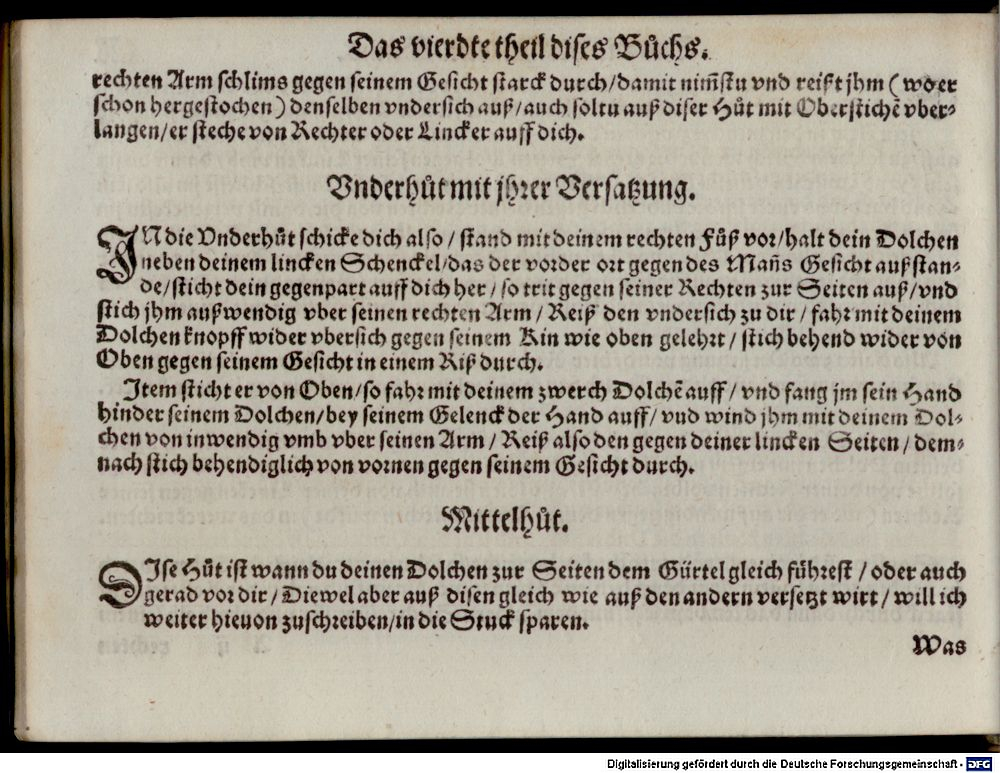 Das vierdte theil dises Bůchs.
rechten Arm schlims gegen seinem Gesicht starck durch/damit nim̃stu vnd reißt jhm (wo er
schon hergestochen) denselben vndersich auß/auch soltu auß diser Hůt mit Oberstichẽ vber-
langen/er steche von Rechter oder Lincker auff dich.
Vnderhůt mit jhrer Versatzung.
IN die Vnderhůt schicke dich also/stand mit deinem rechten Fůß vor/halt dein Dolchen
neben deinem lincken Schenckel/das der vorder ort gegen des Mañs Gesicht auß stan-
de/sticht dein gegenpart auff dich her/so trit gegen seiner Rechten zur Seiten auß/vnd
stich jhm außwendig vber seinen rechten Arm/Reiß den vndersich zu dir/fahr mit deinem
Dolchen knopff wider vbersich gegen seinem Kin wie oben gelehrt/stich behend wider von
Oben gegen seinem Gesicht in einem Riß durch.
Item sticht er von Oben/so fahr mit deinem zwerch Dolchẽ auff/vnd fang jm sein Hand
hinder seinem Dolchen/bey seinem Gelenck der Hand auff/vnd wind jhm mit deinem Dol-
chen von inwendig vmb vber seinen Arm/Reiß also den gegen deiner lincken Seiten/dem-
nach stich behendiglich von vornen gegen seinem Gesicht durch.
Mittelhůt.
DIse Hůt ist wann du deinen Dolchen zur Seiten dem Gürtel gleich führest/oder auch
gerad vor dir/Diewel aber auß disen gleich wie auß den andern versetzt wirt/will ich
weiter hieuon zuschreiben/in die Stuck sparen.
Was
Digitalisierung gefördert durch die Deutsche Forschungsgemeinschaft - DFG